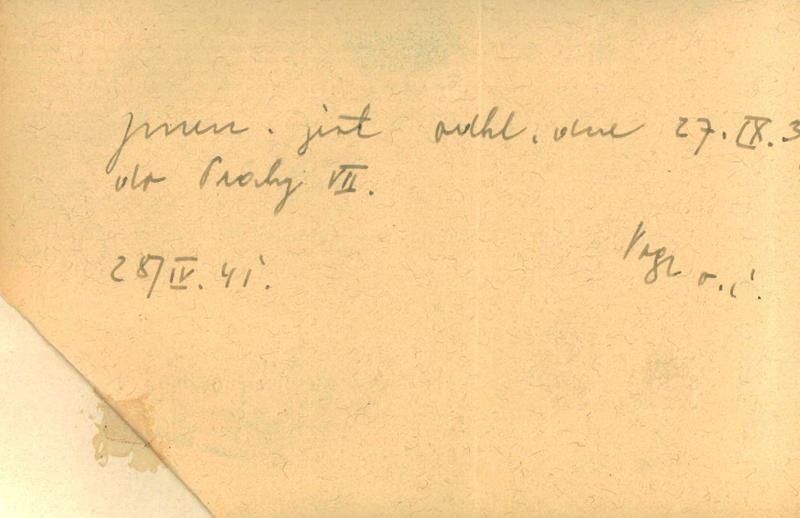 jmen. jest odhl. dne 27.IX.3
do Prahy VII.
28/IV.41.